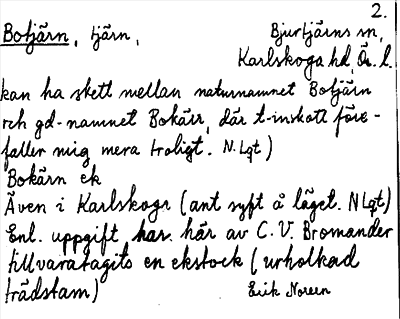 2.
Botjärn, tjärn, Bjurtjärns sn,
Karlskoga hd, Ör. l.
kan ha skett mellan naturnamnet Botjärn
och gd-namnet Bokärr, där t-inskott före-
faller mig mera troligt. N. Lqt)
Bokärn ek
Även i Karlskoga (ant syft å läget. N Lqt)
Enl. uppgift har här av C. V. Bromander
tillvaratagits en ekstock (urholkad
trädstam) Erik Noreen